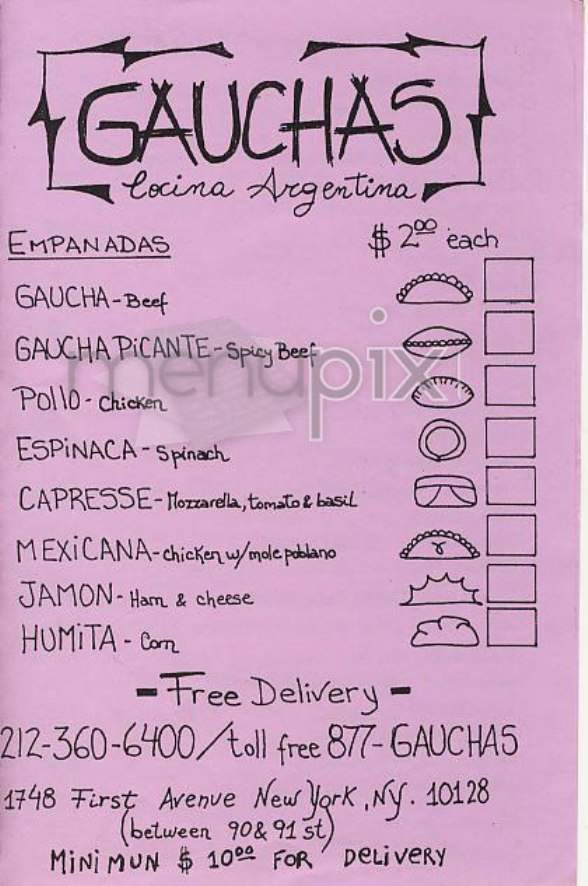 GAUCHAS
Cocina Argentina
EMPANADAS $2.00 each
GAUCHA - Beef
GAUCHA PiCANTE - Spicy Beef
menupix
POllO - chicken
ESPiNACA - Spinach
CAPRESSE - Mozzarella, tomato & basil
MEXiCANA - chicken w/mole poblano
JAMON - Ham & cheese
HUMiTA - Corn
- Free Delivery -
212-360-6400/toll free 877-GAUCHAS
1748 First Avenue New York, NY. 10128
(between 90 & 91 st)
MiNiMUN $ 10.00 FOR DELiVERY